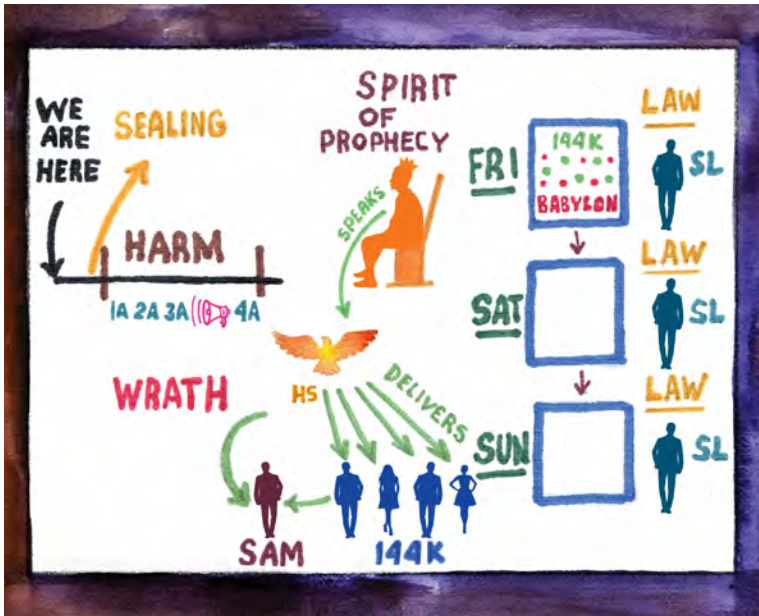 WE
ARE
HERE
SEALING
HARM
1A 2A 3A 4A
WRATH
SPIRIT
OF
PROPHECY
SPEAKS
HS
DELIVERS
SAM
144K
FRI
144K
BABYLON
LAW
SL
SAT
LAW
SL
SUN
LAW
SL